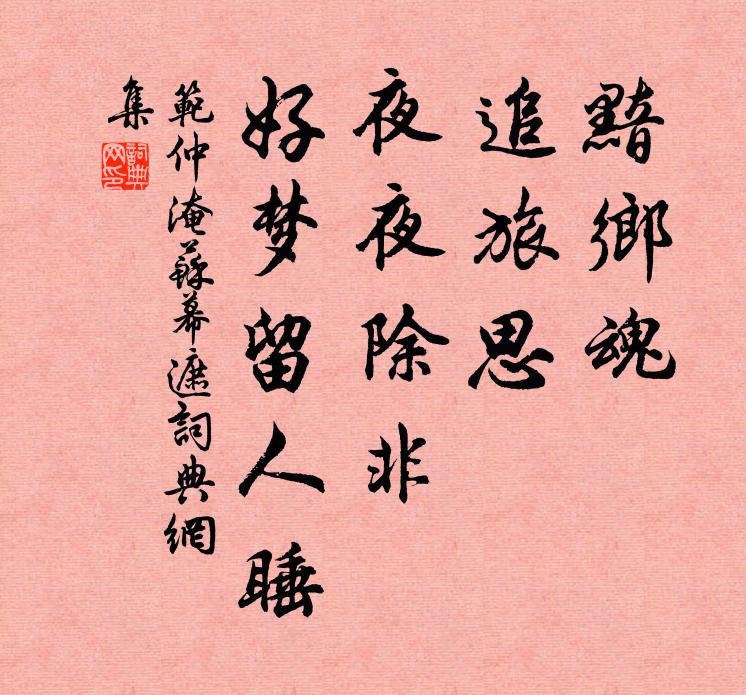 黯鄉魂
追旅思
夜夜除非
好梦留人睡
範仲淹蘇幕遮詞典網
集
詞典網印